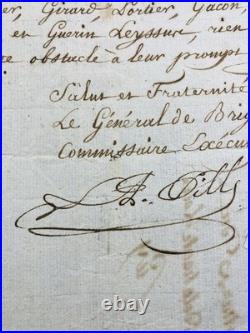 er, Girard, Lortier, Gacon
en Guérin Leyssur, rien
e obstacle à leur prompt
Salut et Fraternité
Le Général de Brig
Commissaire Exécu